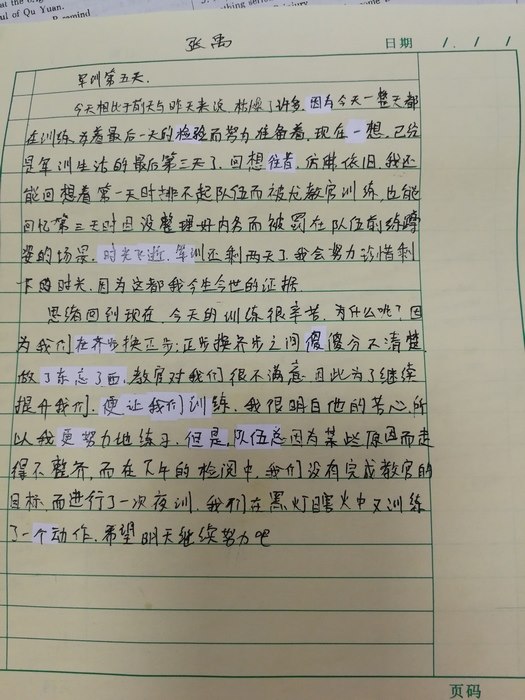 ul of Qu Yuan.
Remind
张禹
日期 / . / . /
军训第五天.
今天相比于前天与昨天来说,枯燥了许多,因为今天一整天都
在训练,为着最后一天的检验而努力准备着,现在一想,已经
是军训生活的最后第三天了,回想往昔,仿佛依旧,我还
能回想着第一天时排不起队伍而被龙教官训练,也能
回忆第三天时因没整理毋内务而被罚在队伍前练蹲
姿的场景,时光飞逝,军训还剩两天了,我会努力珍惜剩
下的时光,因为这都我今生今世的证据.
思绪回到现在,今天的训练很辛苦,为什么呢?因
为我们在齐步换正步;正步换齐步之间傻傻分不清楚,
做了东忘了西,教官对我们很不满意.因此为了继续
提升我们,便让我们训练,我很明白他的苦心,所
以我更努力地练习,但是,队伍总因为某些原因而走
得不整齐,而在下午的检阅中,我们没有完成教官的
目标,而进行了一次夜训,我们在黑灯瞎火中又训练
了一个动作,希望明天继续努力吧
页码